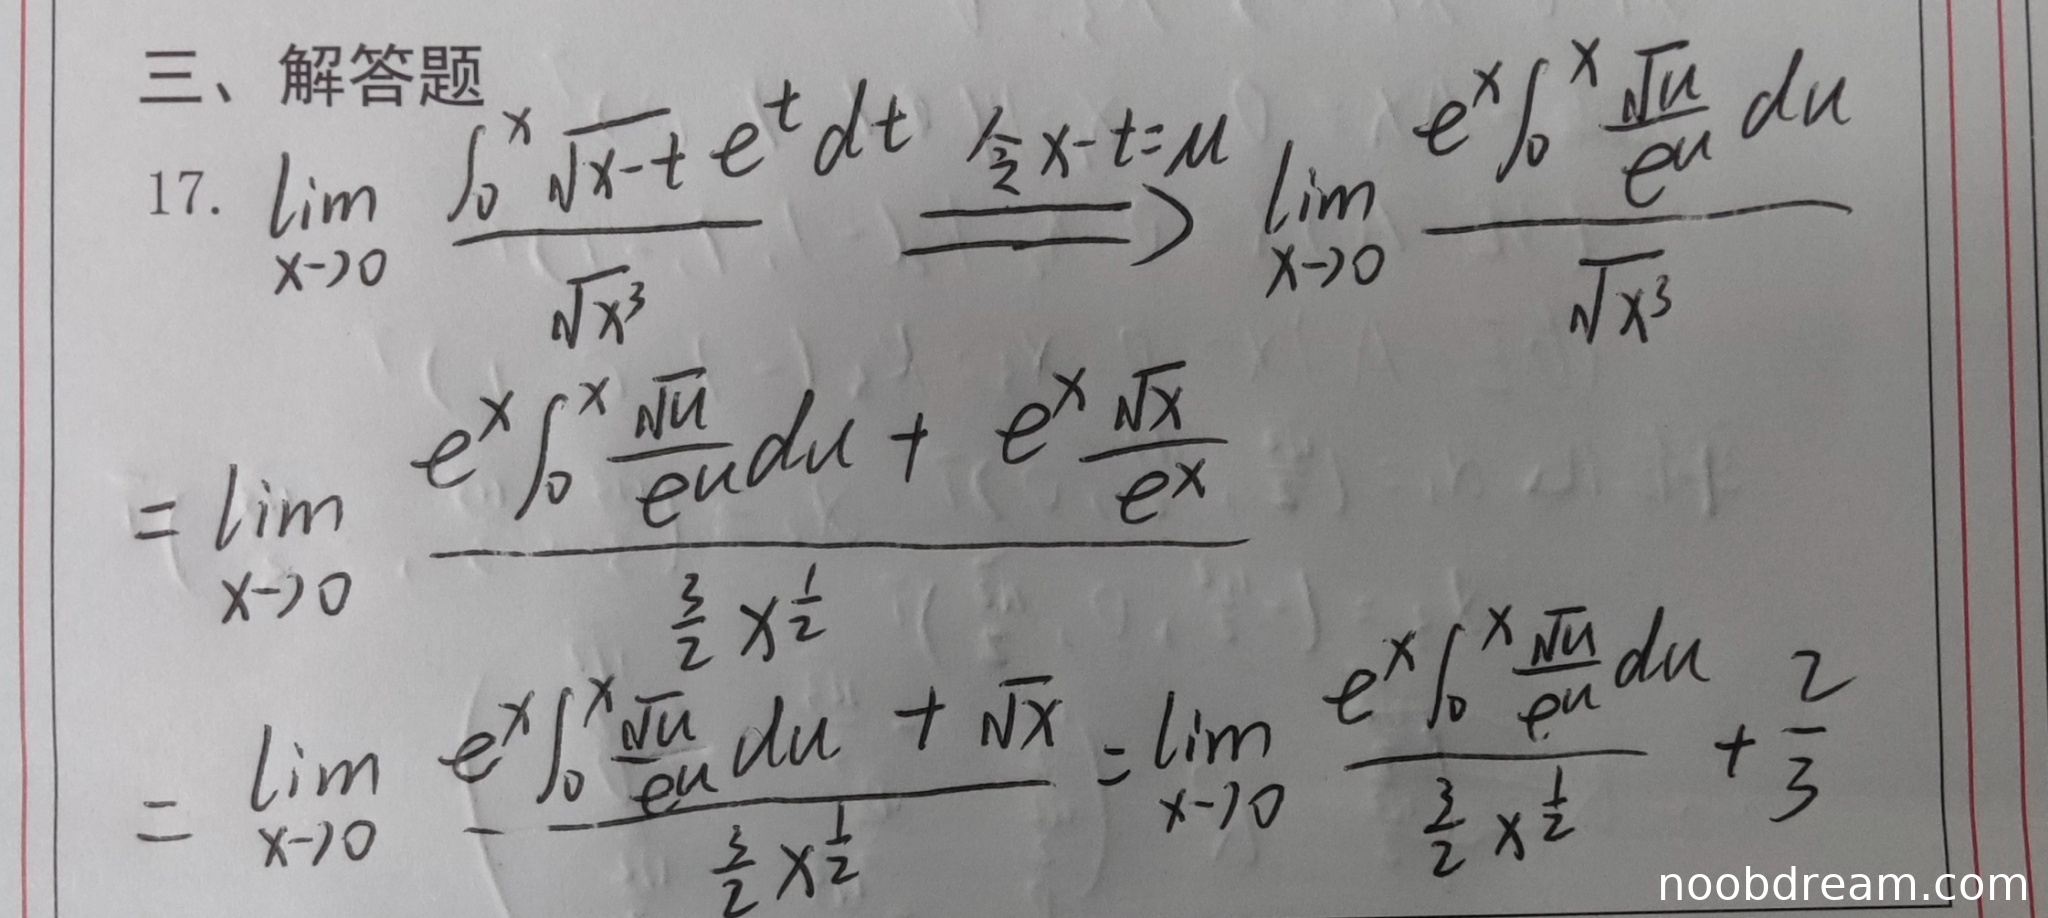 三、解答题
17. lim_{x→0} \frac{∫_0^x √(x-t) e^t dt}{√(x^3)} 令x-t=u ⟹ lim_{x→0} \frac{e^x ∫_0^x \frac{√u}{e^u} du}{√(x^3)}
= lim_{x→0} \frac{e^x ∫_0^x \frac{√u}{e^u} du + e^x \frac{√x}{e^x}}{\frac{3}{2} x^{\frac{1}{2}}}
= lim_{x→0} \frac{e^x ∫_0^x \frac{√u}{e^u} du + √x}{\frac{3}{2} x^{\frac{1}{2}}} = lim_{x→0} \frac{e^x ∫_0^x \frac{√u}{e^u} du}{\frac{3}{2} x^{\frac{1}{2}}} + \frac{2}{3}
noobdream.com